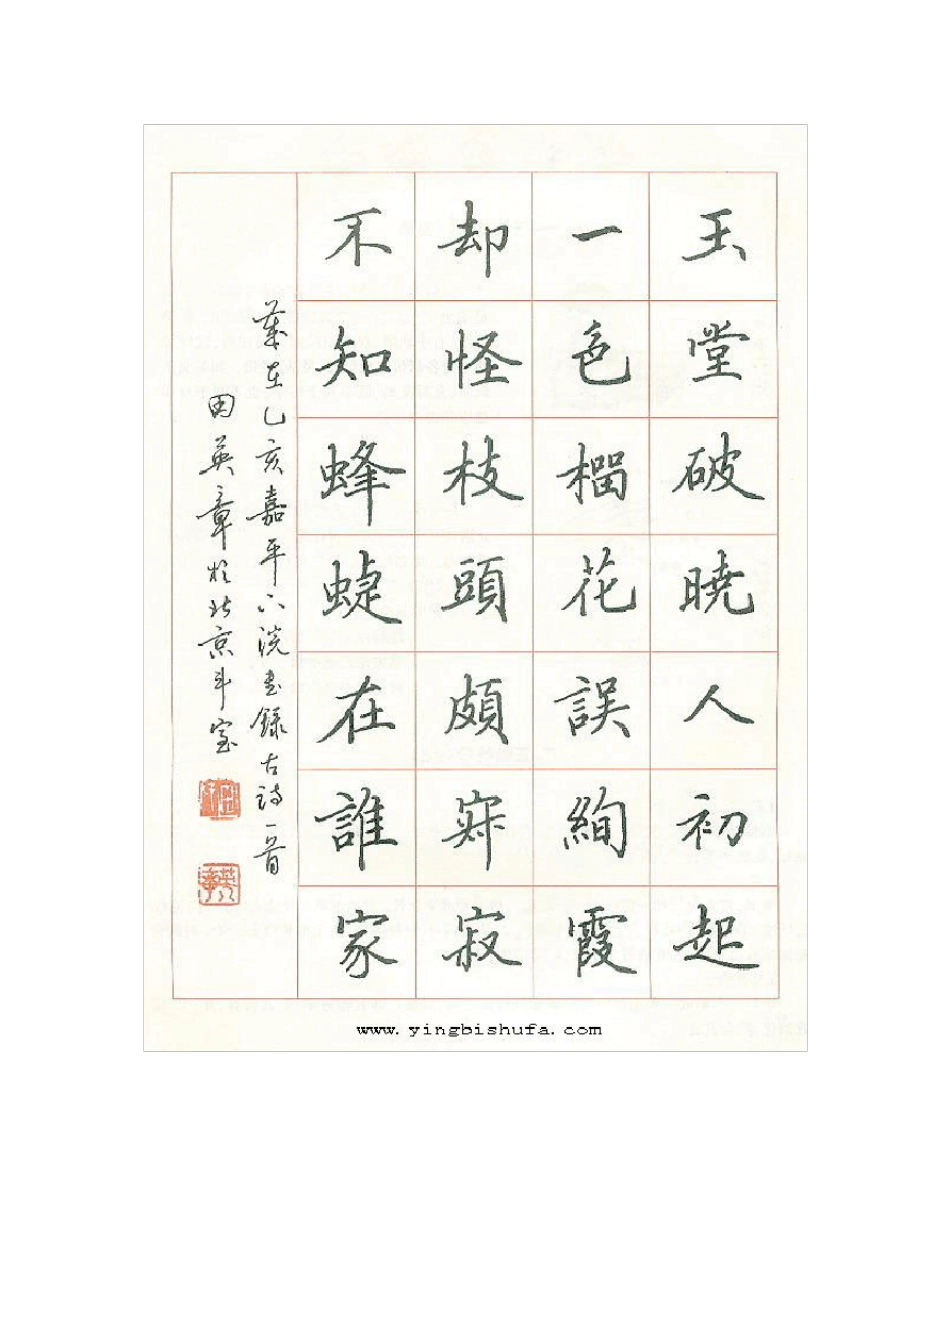 玉堂破曉人初起
一色榴花誤絢霞
却怪枝頭頗寂寂
不知蜂蜨在誰家
歲在乙亥嘉平下浣書錄古詩一首
田英章於北京斗室
www.yingbishufa.com